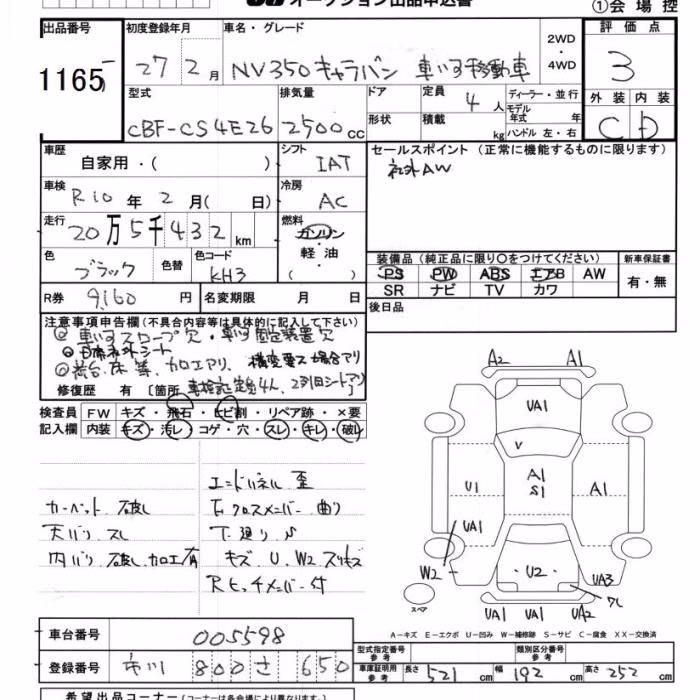 オークション出品申込書
①会場控
出品番号 初度登録年月 車名・グレード 評価点
1165 27年2月 NV350キャラバン 車いす移動車 2WD・4WD 3
型式 排気量 ドア 定員 4人 ディーラー・並行 外装 内装
CBF-CS4E26 2500cc 形状 積載 kg モデル年式 年 ハンドル 左・右 C D
車歴 自家用・( ) シフト IAT セールスポイント (正常に機能するものに限ります)
社外AW
車検 R10年2月( 日) 冷房 AC
走行 20万5千432km 燃料 ガソリン・軽油 ( )
色 ブラック 色替 色コード KH3
装備品 (純正品に限り○をつけてください) 新車保証書
PS PW ABS エアB AW 有・無
SR ナビ TV カワ
R券 9,160円 名変期限 月 日 後日品
注意事項申告欄 (不具合内容等は具体的に記入して下さい)
車いすスロープ欠・車いす固定装置欠
社外シート
荷台、床等、加工アリ、構変要ス場合アリ
修復歴 有 [箇所 車検証定員4人、2列目シートアリ
検査員 FW キズ・飛石・ヒビ割・リペア跡・×要
記入欄 内装 キズ・汚レ・コゲ・穴・スレ・キレ・破レ
エンドパネル 歪
カーペット 破レ Fクロスメンバー 曲り
天バリ スレ 下廻り S
内バリ 破レ、加工有 キズ、U、W2 スリキズ
Rピッチメンバー サ
A2 A1
UA1
V
U1 A1 S1 A1
UA1
W2 U2 UA3
スペア
UA1 UA1 UA2
A－キズ E－エクボ U－凹み W－補修跡 S－サビ C－腐食 XX－交換済
車台番号 005598
登録番号 市川 800 さ 650
型式指定番号 参考 類別区分番号 参考
車庫証明用 参考 長さ 521cm 幅 192cm 高さ 252cm
希望出品コーナー